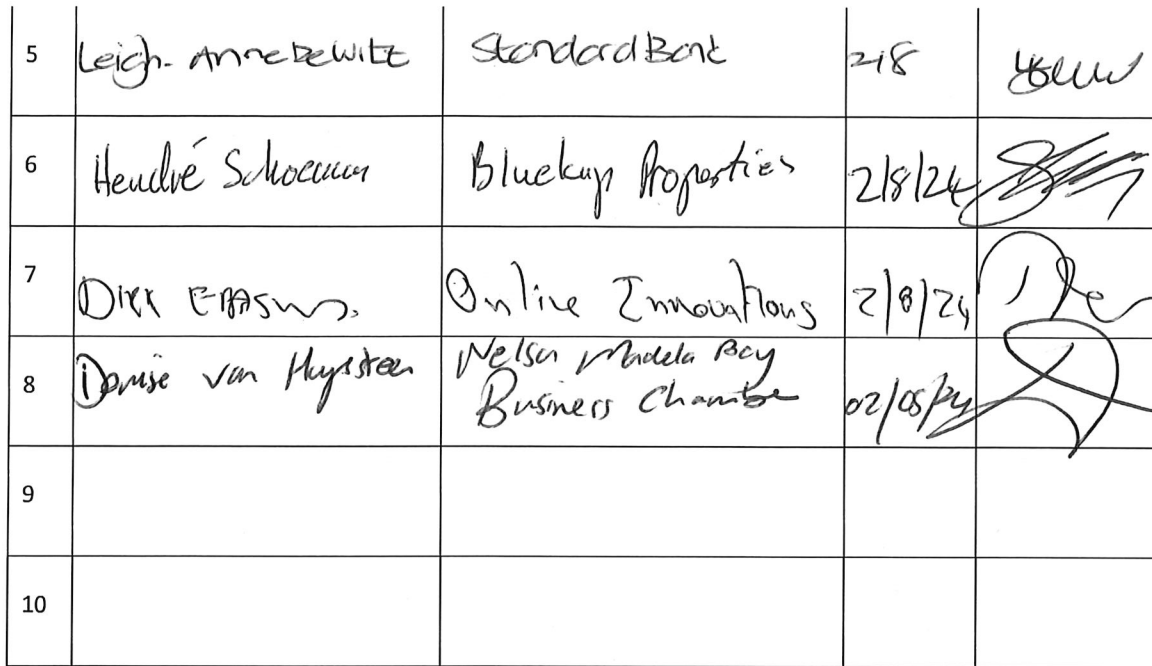 5 Leigh-Anne DeWitt Standard Bank 2/8
6 Hendré Schoeman Bluekup Properties 2/8/24
7 Dirk Erasmus. Online Innovations 2/8/24
8 Denise van Huyssteen Nelson Mandela Bay
Business Chamber 02/08/24
9
10